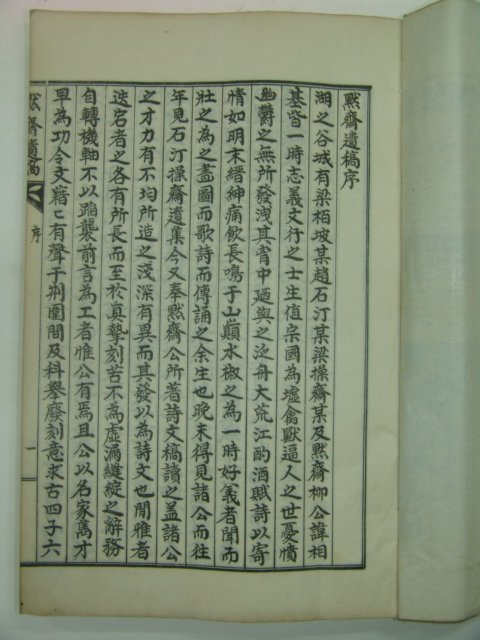 默齋遺稿序
湖之谷城有梁栢坡某趙石汀某梁操齋某及默齋柳公諱相
基皆一時志義文行之士生值宗國為墟禽獸逼人之世憂憤
幽鬱之無所發洩其胷中廼與之泛舟大荒江酌酒賦詩以寄
情如明末縉紳痛飲長鳴于山巔水椒之為一時好義者聞而
壯之為之畵圖而歌詩而傳誦之余生也晚未得見諸公而往
年見石汀操齋遺集今又奉默齋公所著詩文稿讀之盖諸公
之才力有不均所造之淺深有異而其發以為詩文也閒雅者
迭宕者之各有所長而至於真摯刻苦不為虛漏縫綻之辭務
自轉機軸不以蹈襲前言為工者惟公有焉且公以名家雋才
早為功令文藉〻有聲于荆圍間及科擧廢刻意求古四子六
默齋遺稿
序
一